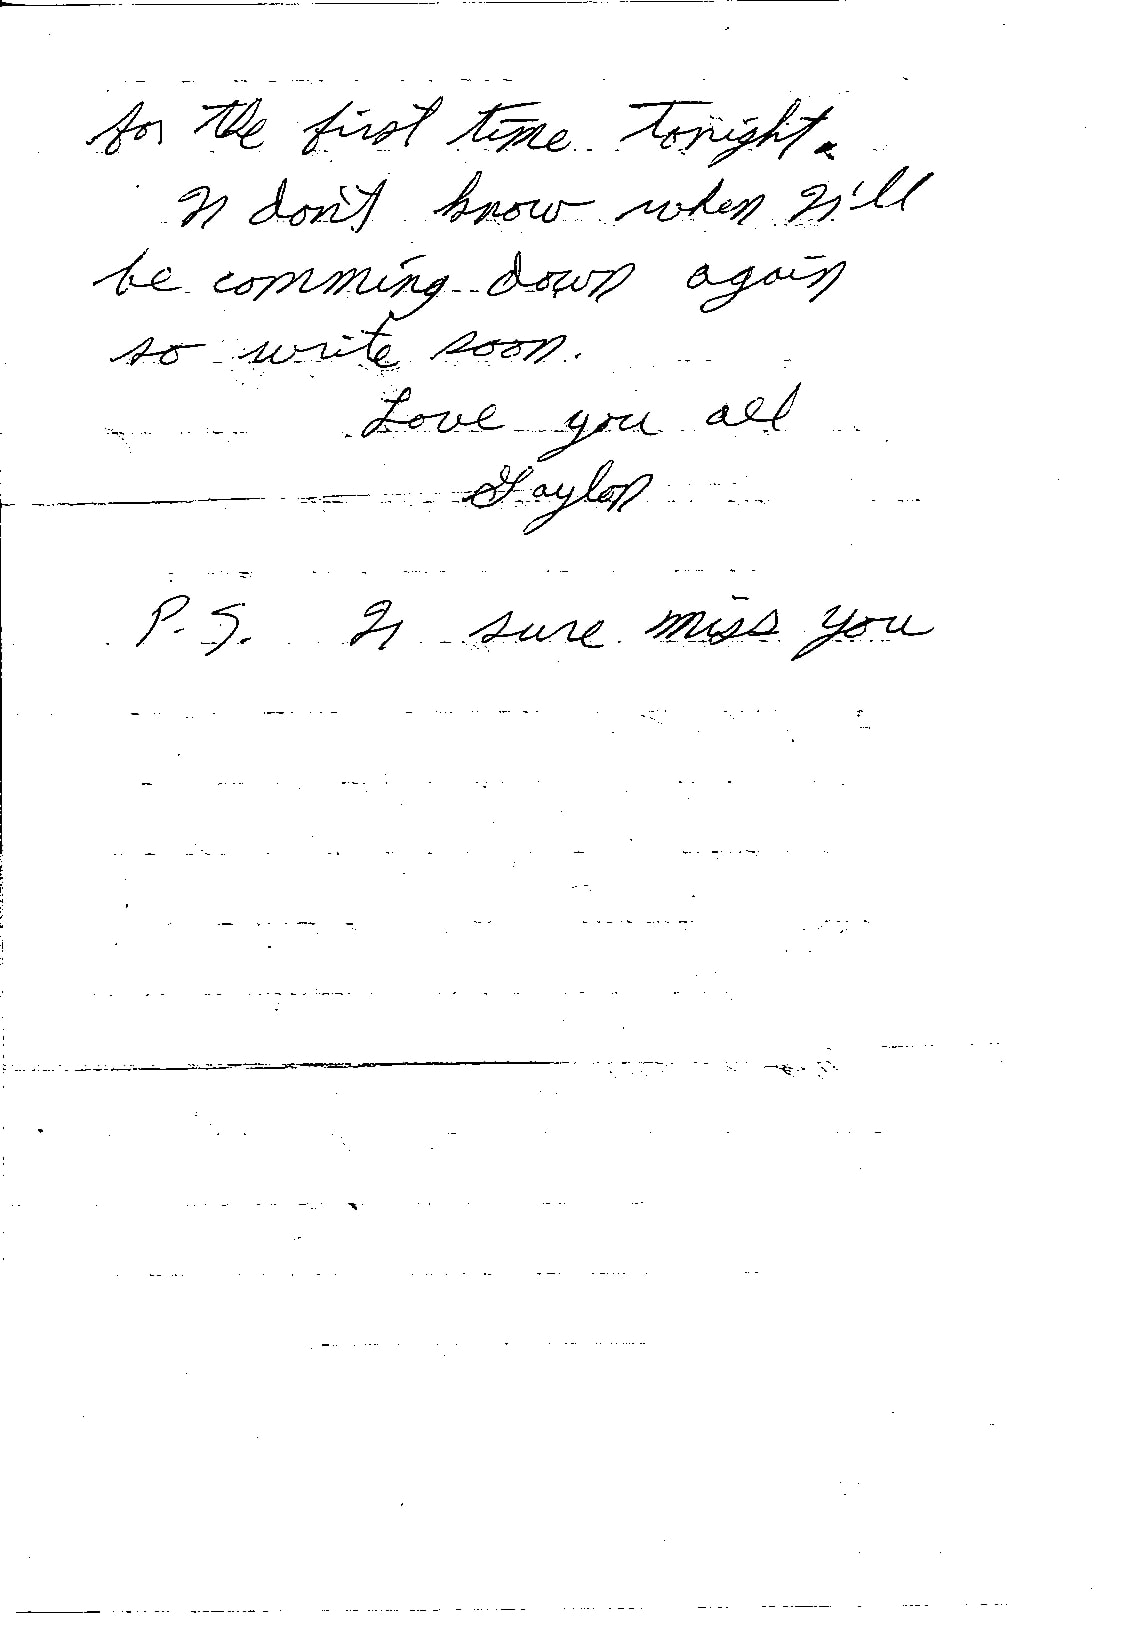 for the first time tonight.
I don't know when I'll
be comming down again
so write soon.
Love you all
Gaylon
P.S. I sure miss you